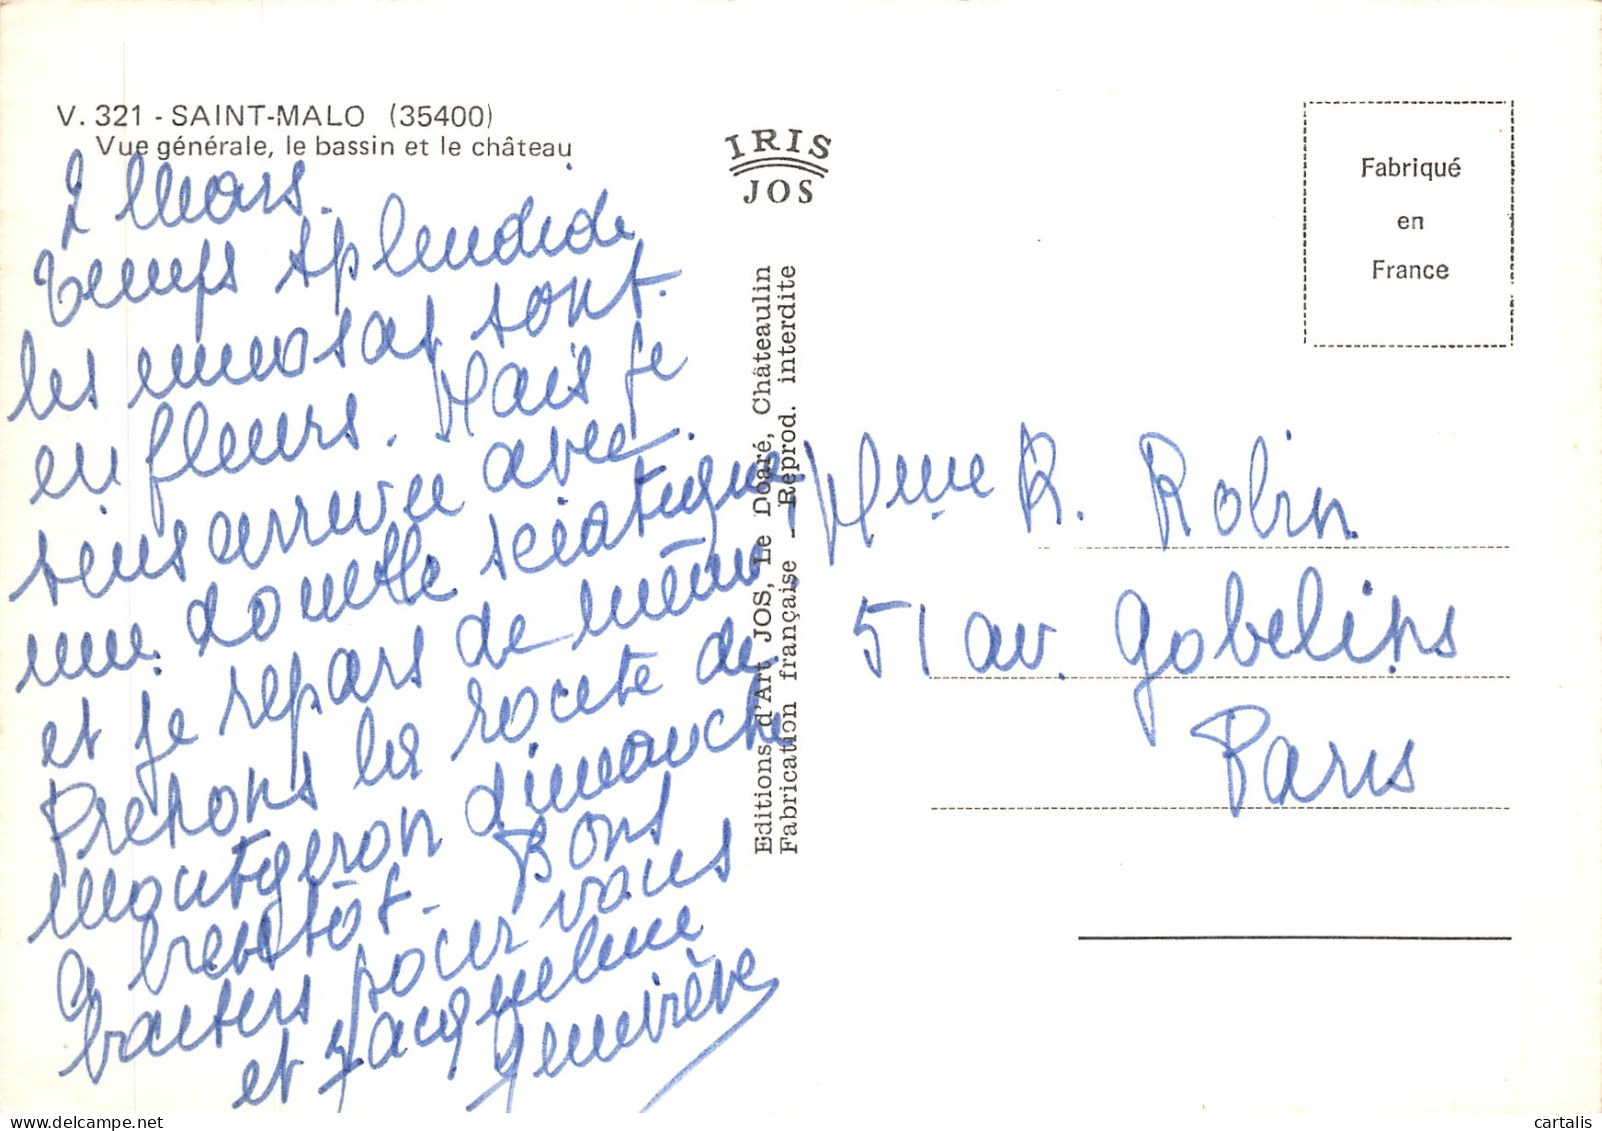 V. 321 - SAINT-MALO (35400)
Vue générale, le bassin et le château
2 Mars.
Temps splendide
les mimosas sont
en fleurs. Mais je
suis arrivée avec
une douette sciatique
et je repars de même,
Prenons la route de
montgeron dimanche
a bientôt - Bons
baisers pour vous
et Jacqueline
Geneviève
IRIS
JOS
Editions d'Art JOS, Le Doaré, Châteaulin
Fabrication française - Reprod. interdite
Fabriqué
en
France
Mme R. Robin
51 av. Gobelins
Paris
cartalis